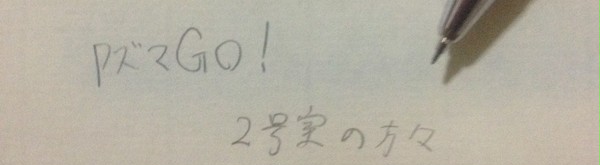 PズマGO!
2号実の方々